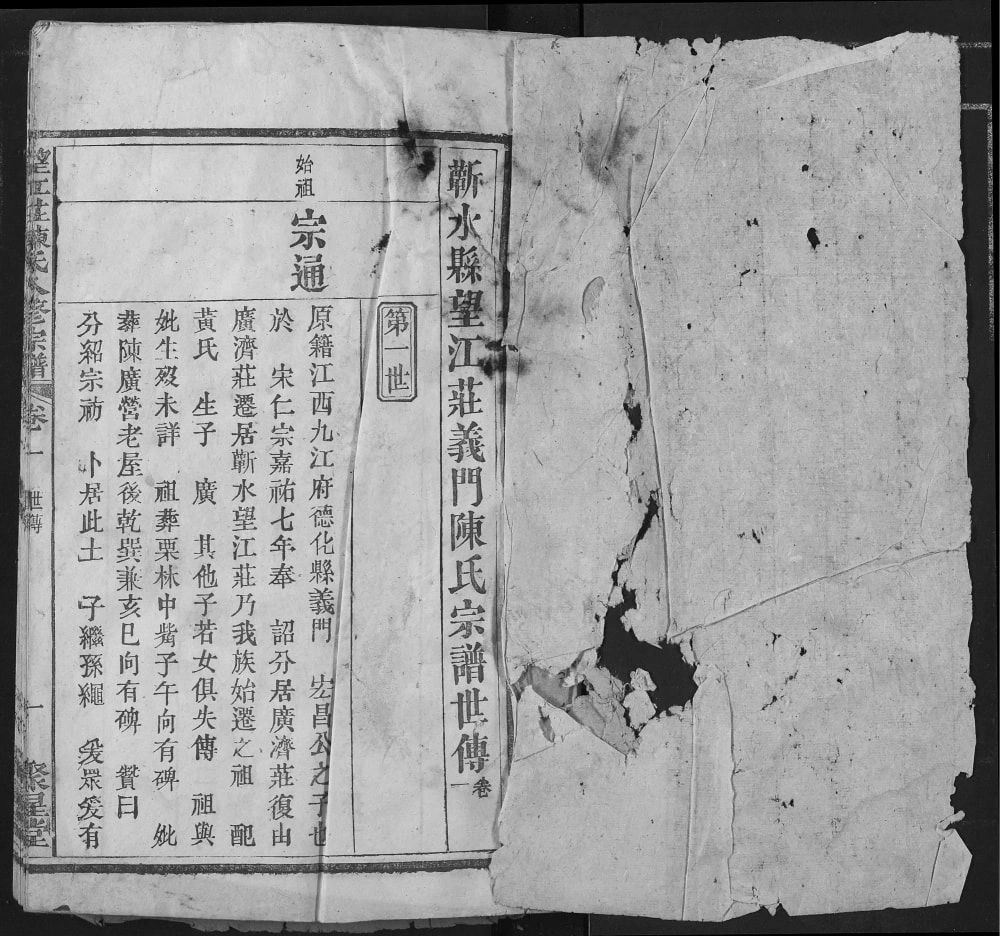 蘄水縣望江莊義門陳氏宗譜世傳 卷一
第一世
始祖
宗通
原籍江西九江府德化縣義門 宏昌公之子也
於 宋仁宗嘉祐七年奉 詔分居廣濟莊復由
廣濟莊遷居蘄水望江莊乃我族始遷之祖 配
黃氏 生子 廣 其他子若女俱失傳 祖與
妣生歿未詳 祖葬栗林中嘴子午向有碑 妣
葬陳廣營老屋後乾巽兼亥巳向有碑 贊曰
分紹宗祊 卜居此土 子繼孫繩 爰眾爰有
望江莊陳氏八修宗譜
卷一 世傳 一 聚星堂